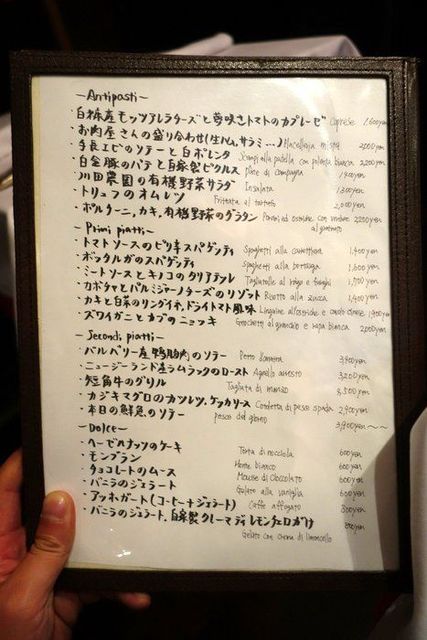 -Antipasti-
・白糠産モッツアレラチーズと夢咲きトマトのカプレーゼ Caprese 1,600yen
・お肉屋さんの盛り合わせ(生ハム,サラミ...) Macelleria mista 2,000yen
・手長エビのソテーと白ポレンタ Scampi alla padella con polenta bianca 2,200yen
・白金豚のパテと自家製ピクルス pate di campagna 1,400yen
・川田農園の有機野菜サラダ Insalata 1,300yen
・トリュフのオムレツ Frittata al tartufo 2,000yen
・ポルチーニ,カキ,有機野菜のグラタン Porcini ed ostriche con verdure al gratinato 2200yen
-Primi piatti-
・トマトソースのピリ辛スパゲッティ Spaghetti alla carrettiera 1,400yen
・ボッタルガのスパゲッティ Spaghetti alla bottarga 1,600yen
・ミートソースとキノコのタリアテッレ Tagliatelle al ragu e funghi 1,700yen
・カボチャとパルミジャーノチーズのリゾット Risotto alla zucca 1,400yen
・カキと白菜のリングイネ,ドライトマト風味 Linguine all'ostriche e cavolo cinese 1,900yen
・ズワイガニとカブのニョッキ Gnocchetti al granchio e rapa bianca 2,000yen
-Secondi piatti-
・バルバリー産鴨胸肉のソテー Petto d'anatra 3,400yen
・ニュージーランド産ラムラックのロースト Agnello arrosto 3,200yen
・短角牛のグリル Tagliata di manzo 3,500yen
・カジキマグロのカツレツ,ケッカソース Cotoletta di pesce spada 2,900yen
・本日の鮮魚のソテー pesce del giorno 3,900yen〜〜
-Dolce-
・ヘーゼルナッツのケーキ Torta di nocciola 600yen
・モンブラン Monte bianco 600yen
・チョコレートのムース Mousse di cioccolato 600yen
・バニラのジェラート Gelato alla vaniglia 600yen
・アッフォガート(コーヒー+ジェラート) Caffe affogato 800yen
・バニラのジェラート,自家製クレーマディレモンチェロがけ Gelato con crema di limoncello